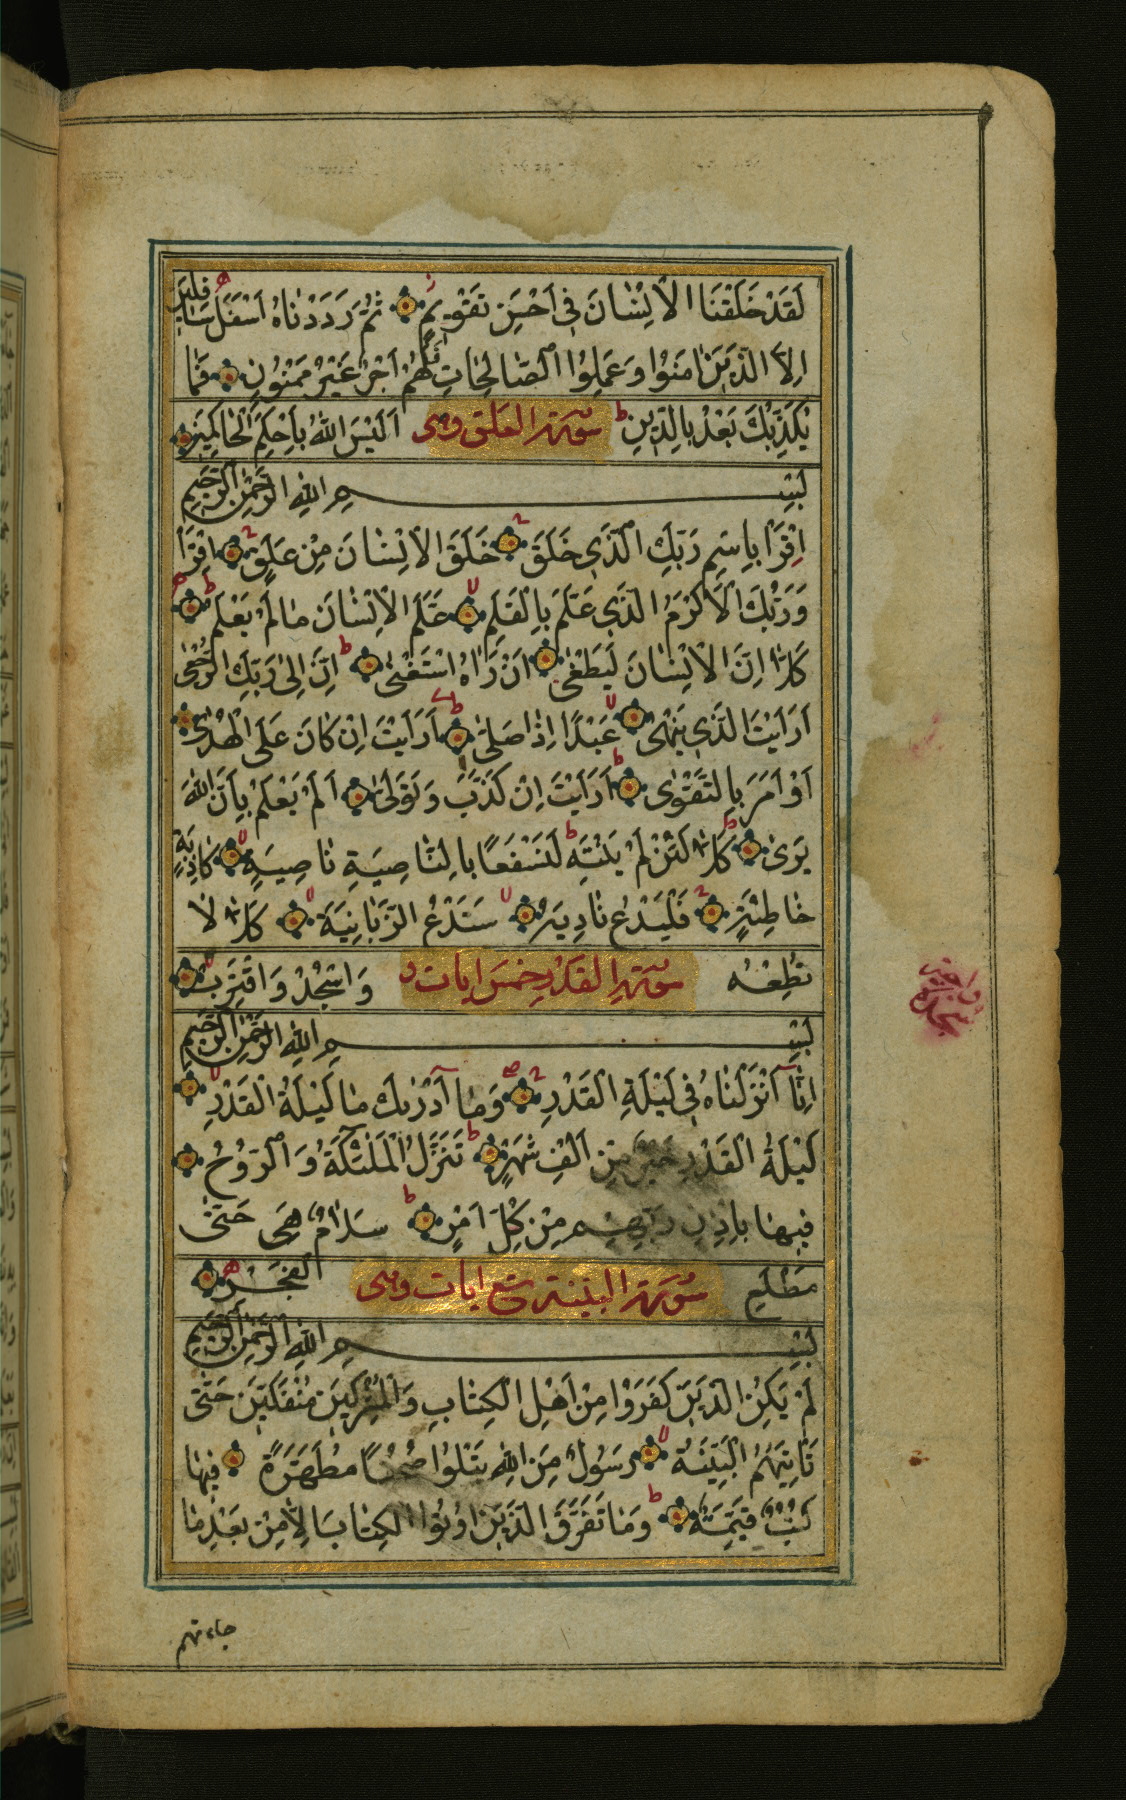 لَقَدْ خَلَقْنَا الْاِنْسٰانَ فِي اَحْسَنِ تَقْوِيمٍ ثُمَّ رَدَدْنٰاهُ اَسْفَلَ سٰافِلِينَ
اِلَّا الَّذِينَ اٰمَنُوا وَعَمِلُوا الصّٰالِحٰاتِ فَلَهُمْ اَجْرٌ غَيْرُ مَمْنُونٍ فَمٰا
يُكَذِّبُكَ بَعْدُ بِالدِّينِ سورة العلق وهى اَلَيْسَ اللّٰهُ بِاَحْكَمِ الْحٰاكِمِينَ
بِسْمِ اللّٰهِ الرَّحْمٰنِ الرَّحِيمِ
اِقْرَاْ بِاسْمِ رَبِّكَ الَّذِي خَلَقَ خَلَقَ الْاِنْسٰانَ مِنْ عَلَقٍ اِقْرَاْ
وَرَبُّكَ الْاَكْرَمُ الَّذِي عَلَّمَ بِالْقَلَمِ عَلَّمَ الْاِنْسٰانَ مٰا لَمْ يَعْلَمْ
كَلَّا اِنَّ الْاِنْسٰانَ لَيَطْغٰى اَنْ رَاٰهُ اسْتَغْنٰى اِنَّ اِلٰى رَبِّكَ الرُّجْعٰى
اَرَاَيْتَ الَّذِي يَنْهٰى عَبْدًا اِذٰا صَلّٰى اَرَاَيْتَ اِنْ كَانَ عَلَى الْهُدٰى
اَوْ اَمَرَ بِالتَّقْوٰى اَرَاَيْتَ اِنْ كَذَّبَ وَتَوَلّٰى اَلَمْ يَعْلَمْ بِاَنَّ اللّٰهَ
يَرٰى كَلَّا لَئِنْ لَمْ يَنْتَهِ لَنَسْفَعًا بِالنّٰاصِيَةِ نٰاصِيَةٍ كٰاذِبَةٍ
خٰاطِئَةٍ فَلْيَدْعُ نٰادِيَهُ سَنَدْعُ الزَّبٰانِيَةَ كَلَّا لٰا
تُطِعْهُ سورة القدر خمس ايات وَاسْجُدْ وَاقْتَرِبْ
واجبة
سجدة
بِسْمِ اللّٰهِ الرَّحْمٰنِ الرَّحِيمِ
اِنّٰا اَنْزَلْنٰاهُ فِي لَيْلَةِ الْقَدْرِ وَمٰا اَدْرٰىكَ مٰا لَيْلَةُ الْقَدْرِ
لَيْلَةُ الْقَدْرِ خَيْرٌ مِنْ اَلْفِ شَهْرٍ تَنَزَّلُ الْمَلٰئِكَةُ وَالرُّوحُ
فِيهٰا بِاِذْنِ رَبِّهِمْ مِنْ كُلِّ اَمْرٍ سَلٰامٌ هِيَ حَتّٰى
مَطْلَعِ سورة البينة تسع ايات وهى الْفَجْرِ
بِسْمِ اللّٰهِ الرَّحْمٰنِ الرَّحِيمِ
لَمْ يَكُنِ الَّذِينَ كَفَرُوا مِنْ اَهْلِ الْكِتٰابِ وَالْمُشْرِكِينَ مُنْفَكِّينَ حَتّٰى
تَاْتِيَهُمُ الْبَيِّنَةُ رَسُولٌ مِنَ اللّٰهِ يَتْلُوا صُحُفًا مُطَهَّرَةً فِيهٰا
كُتُبٌ قَيِّمَةٌ وَمٰا تَفَرَّقَ الَّذِينَ اُوتُوا الْكِتٰابَ اِلَّا مِنْ بَعْدِ مٰا
جاءتهم